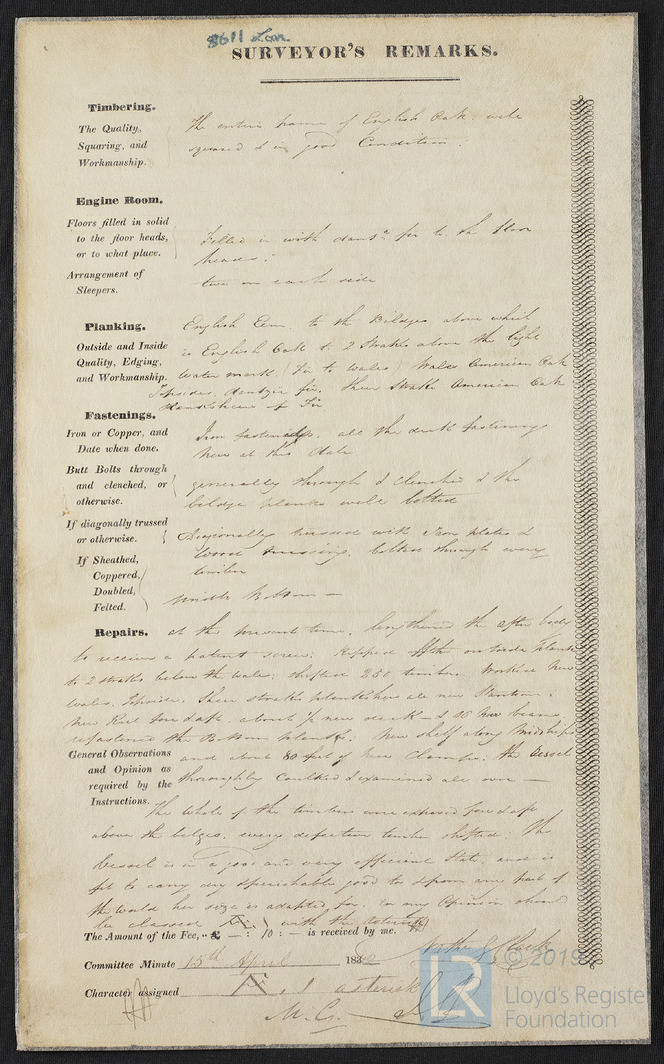 8611 Lon
SURVEYOR'S REMARKS.
Timbering.
The Quality,
Squaring, and
Workmanship.
The entire frame of English Oak well
squared & in good Condition.
Engine Room.
Floors filled in solid
to the floor heads,
or to what place.
Filled in with fir to the floor
heads.
Arrangement of
Sleepers.
two on each side
Planking.
Outside and Inside
Quality, Edging,
and Workmanship.
English Elm to the Bildges above which
is English Oak to 2 Strakes above the light
water mark (Fir to wales) Wales American Oak
Topsides, fir, Sheer Strake American Oak
of Fir
Fastenings.
Iron or Copper, and
Date when done.
Iron fastenings, all the deck fastenings
New at this date
Butt Bolts through
and clenched, or
otherwise.
generally through & clenched & the
bildge planks well bolted
If diagonally trussed
or otherwise.
Diagonally trussed with Iron plates &
Wood trussing, bolted through every
timber
If Sheathed,
Coppered,
Doubled,
Felted.
Bottom —
Repairs.
at the present time, lengthened the after body
to receive a patent screw: Ripped off the outside plank
to 2 strakes below the wales; shifted 250 timbers. Worked New
Wales, Topside, Sheer strake plansheer all new Stantions.
New Keel fore & aft, about ½ new deck — & 16 New beams
refastened the Bottom planks. New shelf along Midships
and about 80 feet of New Clamps: the Vessel
thoroughly Caulked & examined all over —
General Observations
and Opinion as
required by the
Instructions.
The whole of the timbers were exposed fore & aft
above the bilges, every defective timber shifted. The
Vessel is in a good and very efficient State, and is
fit to carry dry & perishable goods to & from any part of
the world her size is adapted for, in my Opinion should
be classed Æ1 with the asterisk
The Amount of the Fee, „ £ — : 10 : — is received by me.
Committee Minute 15th April 183
Character assigned Æ. 1 asterisk
M. G.
LR
© 2019
Lloyd's Register
Foundation